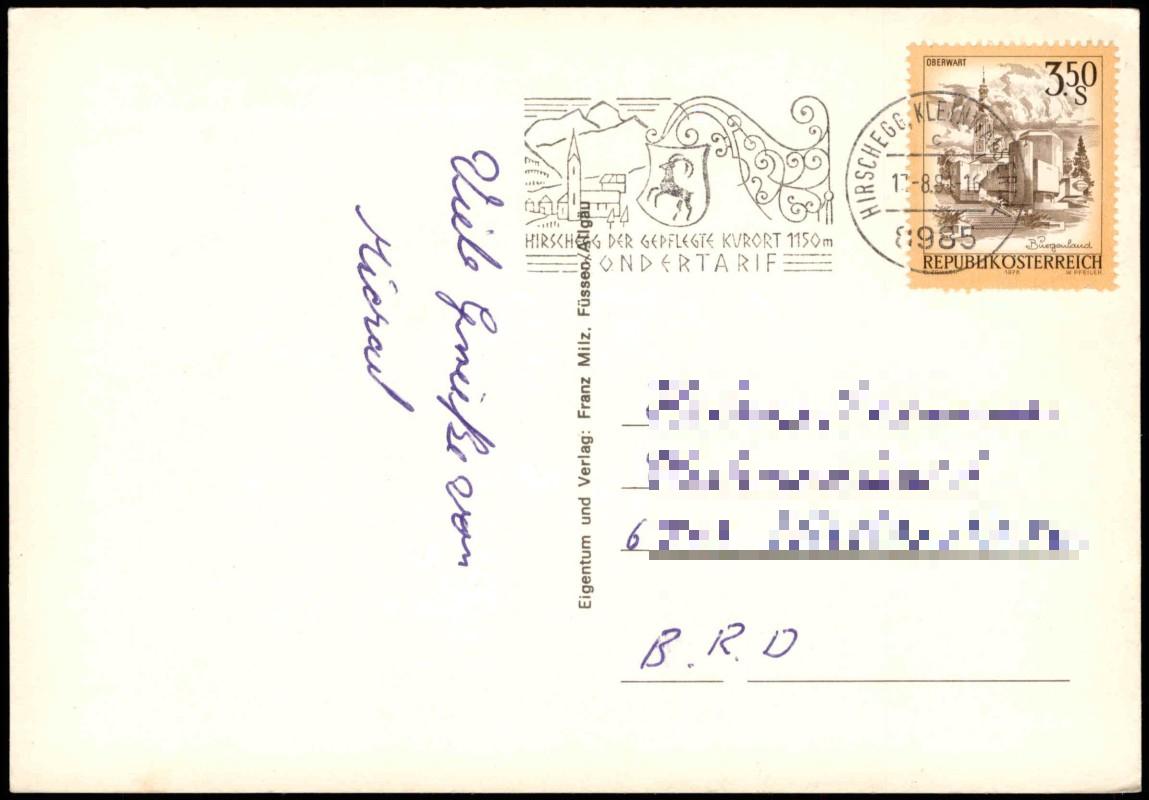 Viele Grüße von
Michael
Eigentum und Verlag: Franz Milz, Füssen/Allgäu
HIRSCHEGG DER GEPFLEGTE KURORT 1150m
SONDERTARIF
HIRSCHEGG, KLEINWALSERTAL
c
8985
OBERWART
3.50
S
Burgenland
REPUBLIK ÖSTERREICH
1978
W. PFEILER
6
B.R.D